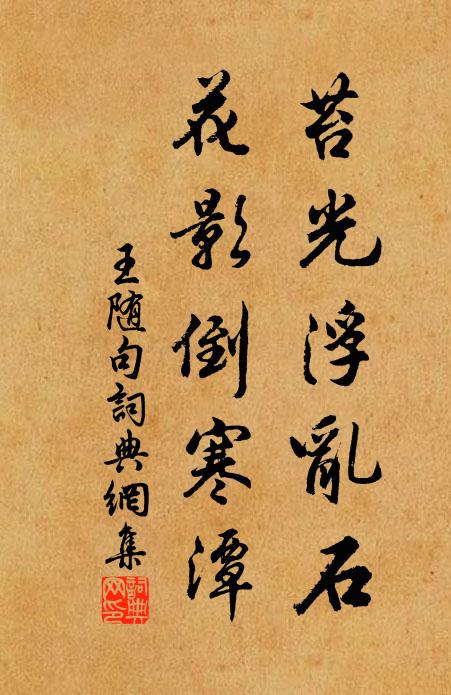 苔光浮亂石
花影倒寒潭
王随句詞典網集
詞典网印